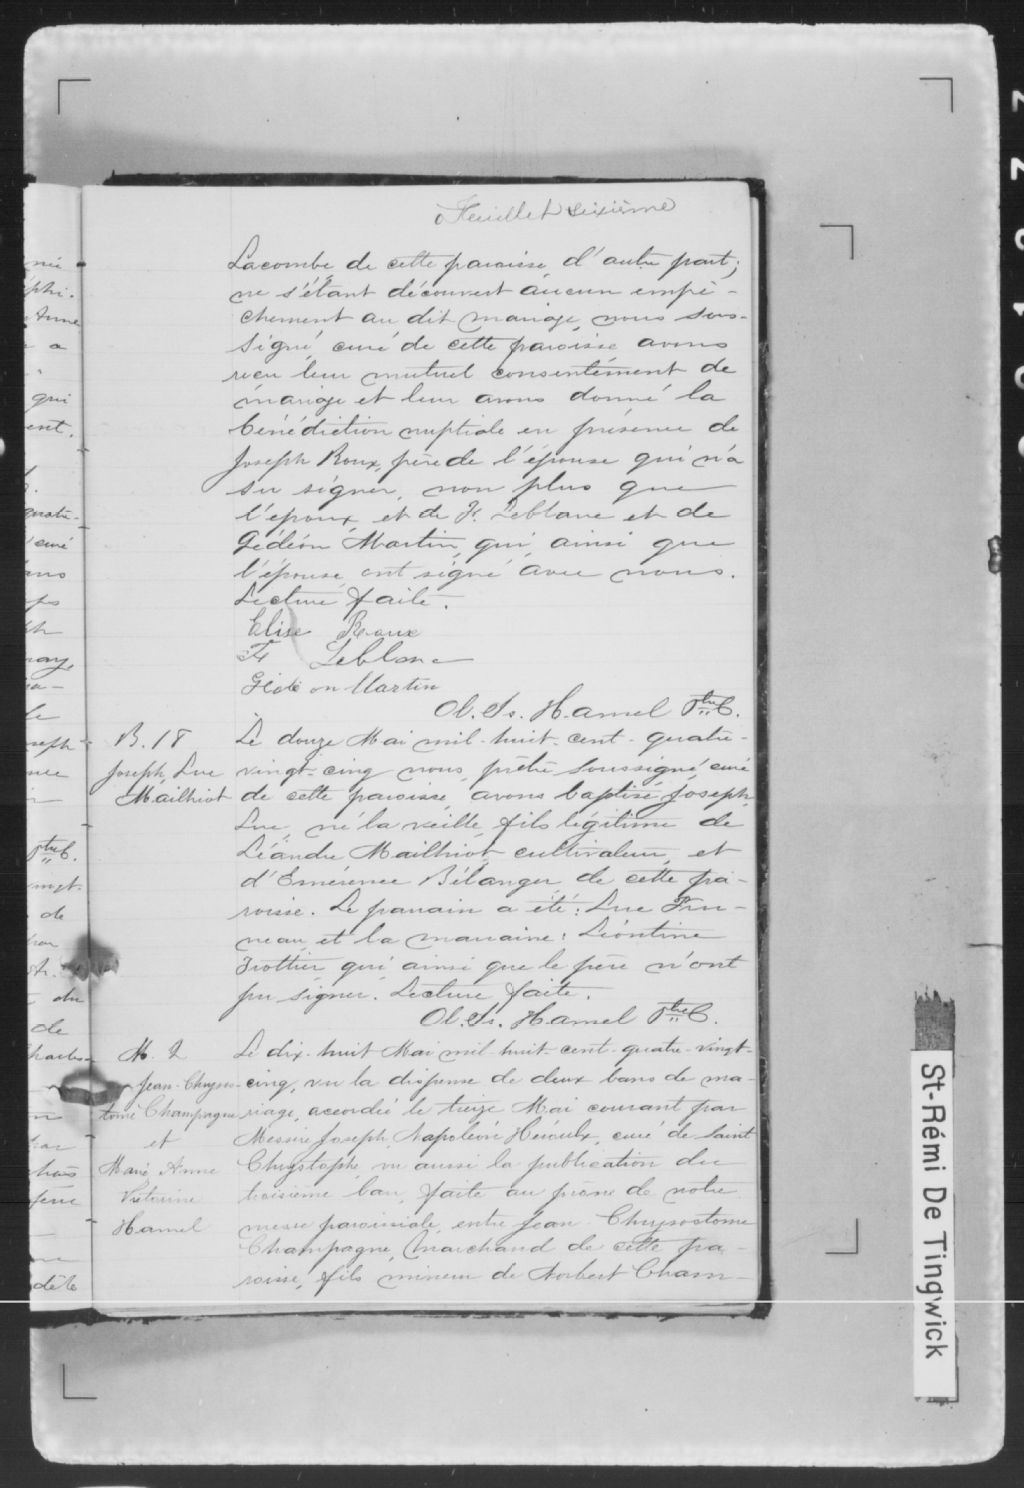 Feuillet sixième
Lacombe de cette paroisse d'autre part;
ne s'étant découvert aucun empê-
chement au dit mariage, nous sous-
signé, curé de cette paroisse avons
reçu leur mutuel consentement de
mariage et leur avons donné la
bénédiction nuptiale en présence de
Joseph Roux, père de l'épouse qui n'a
su signer, non plus que
l'époux, et de Fr. Leblanc et de
Gédéon Martin, qui, ainsi que
l'épouse, ont signé avec nous.
Lecture faite.
Elise Roux
Fr Leblanc
Gédéon Martin
Ol. Hamel Ptre C.
B. 18
Joseph, Luc
Mailhiot
Le douze Mai mil-huit-cent-quatre-
vingt-cinq nous, prêtre soussigné, curé
de cette paroisse, avons baptisé Joseph,
Luc, né la veille, fils légitime de
Léandre Mailhiot, cultivateur, et
d'Emérence Bélanger de cette pa-
roisse. Le parrain a été: Luc
neau, et la marraine: Léontine
Trottier qui ainsi que le père n'ont
pu signer. Lecture faite.
Ol. Hamel Ptre C.
M. 2
Jean-Chrysos-
tome Champagne
et
Marie Anne
Victorine
Hamel
Le dix-huit Mai mil-huit-cent-quatre-vingt-
cinq, vu la dispense de deux bans de ma-
riage, accordée le treize Mai courant par
Messire Joseph, Napoléon Héroulx, curé de Saint
Chrystophe, vu aussi la publication du
troisième ban, faite au prône de notre
messe paroissiale, entre Jean-Chrysostome
Champagne, Marchand de cette pa-
roisse, fils mineur de Norbert Cham-
St-Rémi De Tingwick